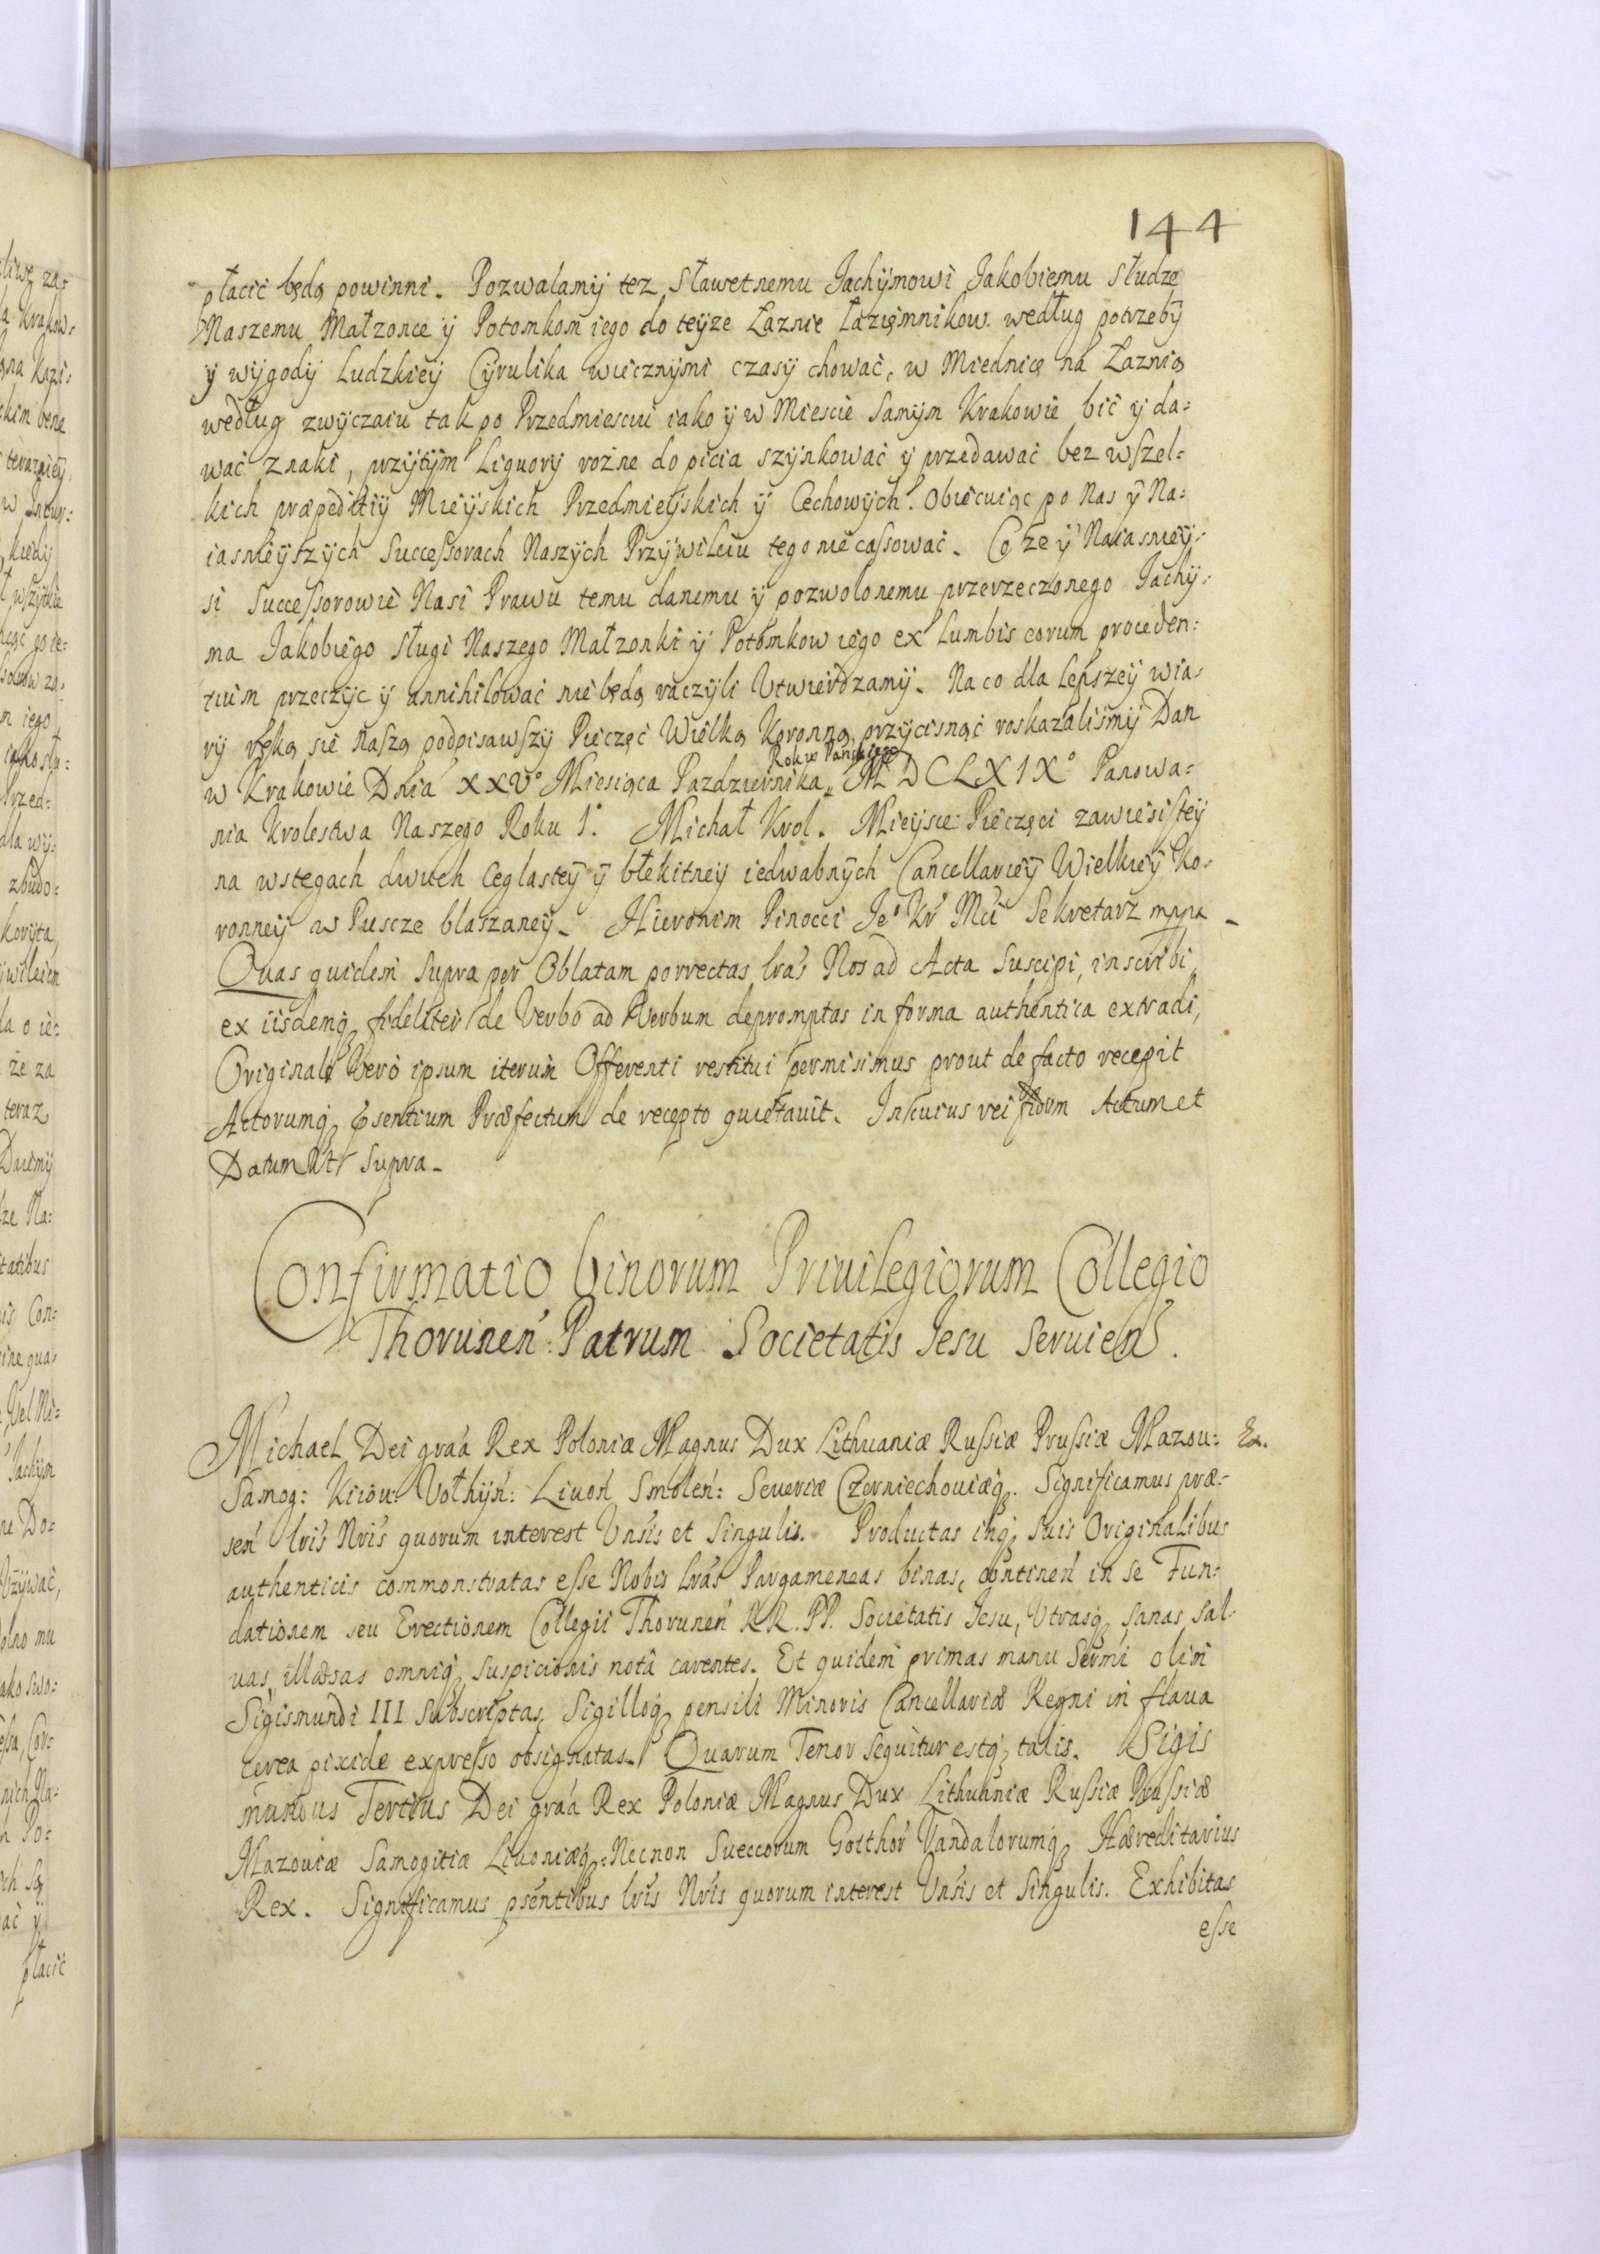 144
płacić będą powinni. Pozwalamÿ tez Sławetnemu Jachÿmowi Jakobiemu Słudze
Naszemu Małzonce ÿ Potomkom iego do teÿze Łaznie Łaziemnikow według potrzebÿ
ÿ wÿgodÿ Ludzkieÿ Cÿrulika wiecznÿmi czasÿ chować, w Miednicę na Łaznią
według zwÿczaiu tak po Przedmiesciu iako ÿ w Miescie Samÿm Krakowie bić ÿ da=
wać znaki, przÿtÿm Liquorÿ rozne do picia szÿnkować ÿ przedawać bez wszel=
kich præpeditiÿ Mieÿskich Przedmieÿskich ÿ Cechowÿch. Obiecuiąc po Nas ÿ Na=
iasnieÿszÿch Successorach Naszÿch Przÿwileiu tego nie cassować. Co ze ÿ Naiasnieÿ=
si Successorowie Nasi Prawu temu danemu ÿ pozwolonemu przerzeczonego Jachÿ=
ma Jakobiego Sługi Naszego Małzonki ÿ Potomkow iego ex Lumbis eorum proceden=
tium przeczÿc ÿ annihilować nie będą raczÿli Utwierdzamÿ. Na co dla Lepszeÿ wia=
rÿ ręką się Naszą podpisawszÿ Pieczęć Wielką Koronną przÿcisnąć roskazalismÿ Dan
Roku Panskiego
w Krakowie Dnia XXV° Miesiąca Pazdziernika MDCLXIX° Panowa=
nia Krolestwa Naszego Roku 1. Michał Krol. Mieÿsce Pieczęci zawiesisteÿ
na wstęgach dwuch Ceglasteÿ ÿ błekitneÿ iedwabnÿch Cancellarieÿ Wielkieÿ Ko=
ronneÿ w Puscze blaszaneÿ. Hieronim Pinocci Je° Kr Mci Sekretarz mppa
Quas quidem Supra per Oblatam porrectas lras Nos ad Acta Suscipi, inscribi
ex iisdemq fideliter de Verbo ad Verbum depromptas in forma authentica extradi,
Originale Vero ipsum iterum Offerenti restitui permisimus prout de facto recepit
Actorumq psentium Præfectum de recepto quietauit. In cuius rei fidem Actum et
Datum Ut Supra.
Confirmatio binorum Priuilegiorum Collegio
Thorunen: Patrum Societatis Jesu Seruien.
Michael Dei graa Rex Poloniæ Magnus Dux Lithuaniæ Russiæ Prussiæ Mazou: Ex.
Samog: Kiiou: Volhÿn: Liuon Smolen: Seueriæ Czerniechouiæq. Significamus præ=
sen lris Nris quorum interest Unsis et Singulis. Productas inq suis Originalibus
authenticis commonstratas esse Nobis lras Pargameneas binas, continen in se Fun=
dationem seu Erectionem Collegii Thorunen RR. PP. Societatis Jesu, Utrasq Sanas Sal=
uas illæsas omniq suspicionis notâ carentes. Et quidem primas manu Sermi olim
Sigismundi III Subscriptas, Sigilloq pensili Minoris Cancellariæ Regni in flaua
cerea pixide expresso obsignatas. Quarum Tenor Sequitur estq talis. Sigis
mundus Tertius Dei graa Rex Poloniæ Magnus Dux Lithuaniæ Russiæ Prussiæ
Mazouiæ Samogitiæ Liuoniæq: Necnon Sueccorum Gotthor Vandalorumq Hæreditarius
Rex. Significamus psentibus lris Nris quorum interest Unsis et Singulis. Exhibitas
esse